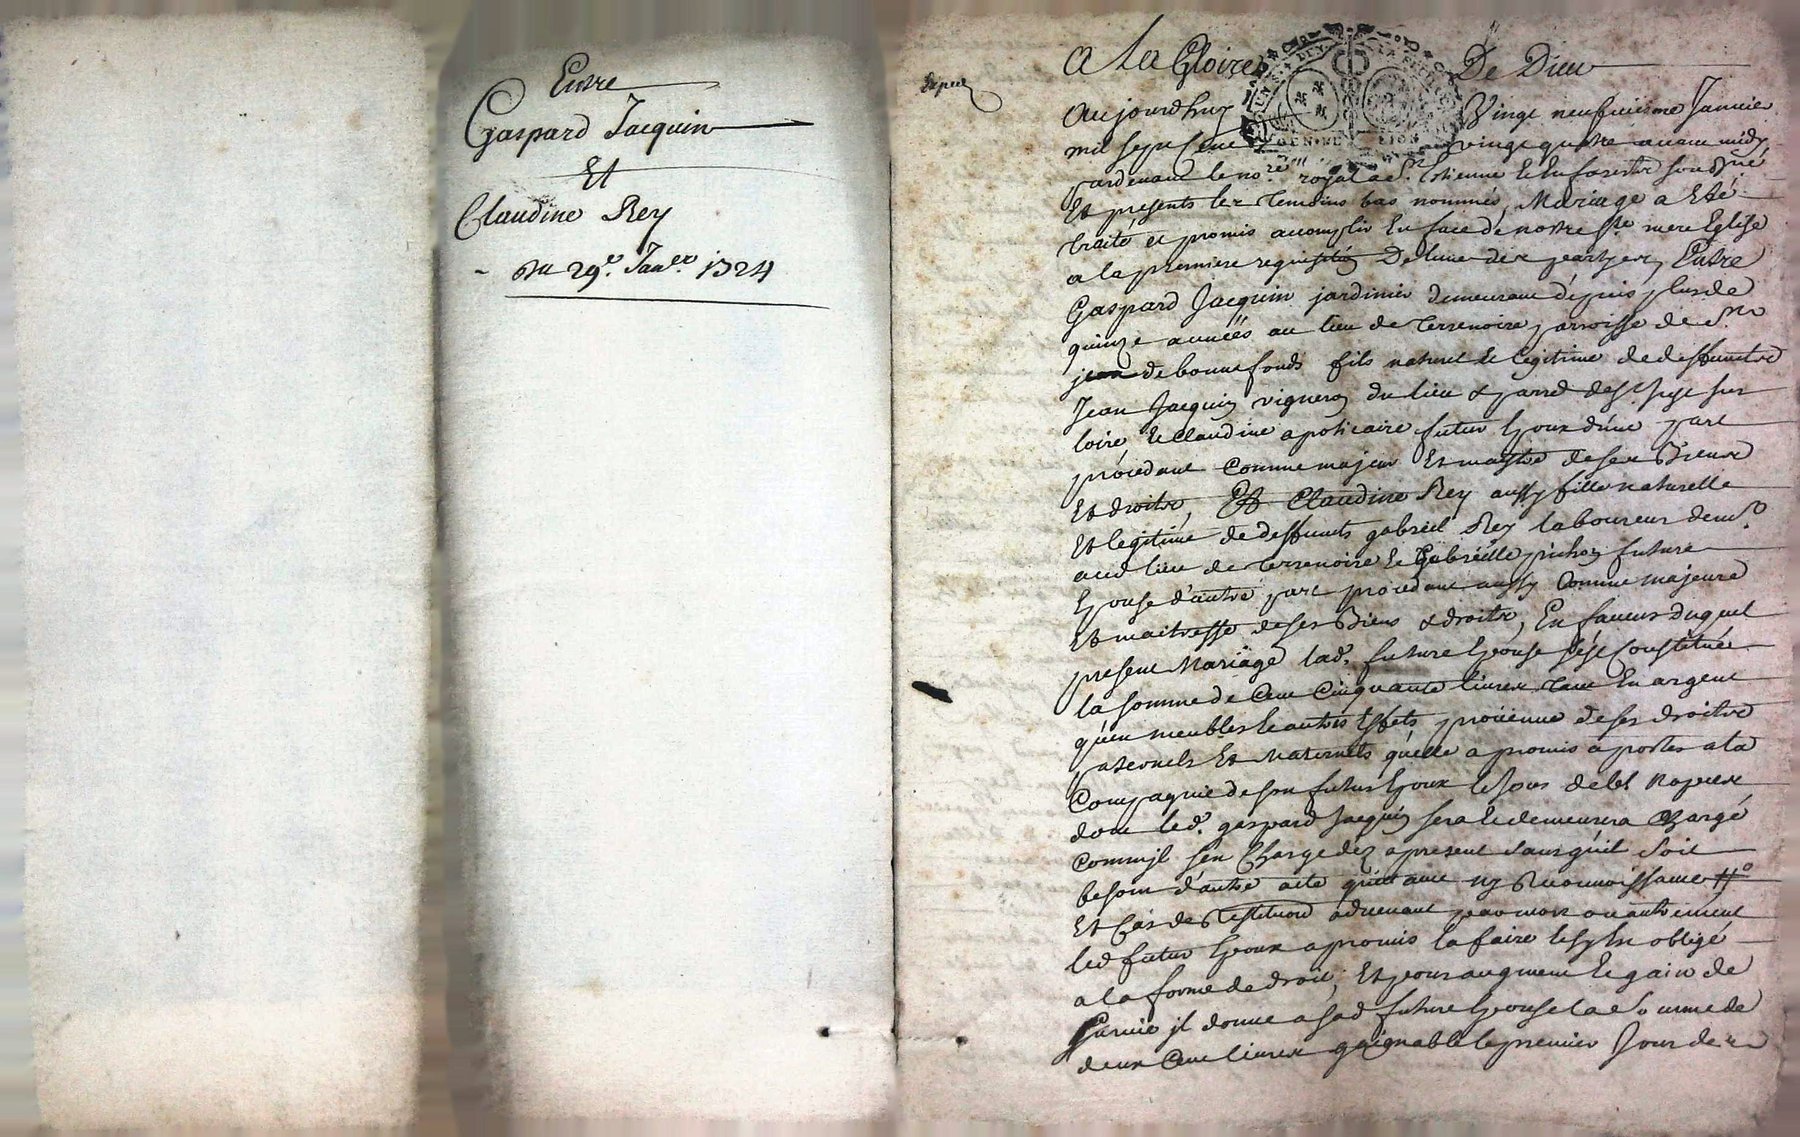 Entre
Gaspard Jacquin
Et
Claudine Rey
- du 29e. Janer. 1724
A La Gloire De Dieu
Aujourdhuy Vingt neufuiesme Januier
mil sept Cent vingt quatre auant midy
pardeuant le nore. royal a St. Estienne En forestz soubsigné
Et presents les temoins bas nommés, Mariage a Eté
traité et promis accomplir En face de nostre ste mere Eglise
a la premiere requisition De lune des partyes, Entre
Gaspard Jacquin jardinier demeurant depuis plus de
quinze années au lieu de terrenoire parroisse de St.
jean de bonnefonds fils naturel Et legitime de deffunts
Jean Jacquin vigneron du lieu & parr. de St. just sur
loire Et Claudine apoticaire futur Epoux d'une part
procedant Comme majeur Et maistre de ses Biens
Et droits, Et Claudine Rey aussy fille naturelle
Et legitime de deffunts gabriel Rey laboureur demt.
aud lieu de terrenoire Et Gabrielle pichon future
Epouse d'autre part procedant aussy Comme majeure
Et maitresse de ses Biens & droits, En faueur duquel
present Mariage lad. future Epouse s'est Constituée
la somme de Cent Cinquante liures tant En argent
qu'en meubles Et autres Effets prouenue de ses droits
paternels Et Maternels qu'elle a promis aporter a la
Compagnie de son futur Epoux le Jour de les Nopces
dont led. gaspard Jacquin sera Et demeurera Chargé
Comm'jl sen Charge dez a present sans qu'il soit
besoin d'autre acte quittance ny Reconnoissance
Et Cas de Restitution aduenant par mort ou autrement
led futur Epoux a promis la faire Estre obligé
a la forme de droit; Et pour augment Et gain de
suruie jl donne a sad future Epouse la somme de
deux Cent liures gaignable le premier Jour de